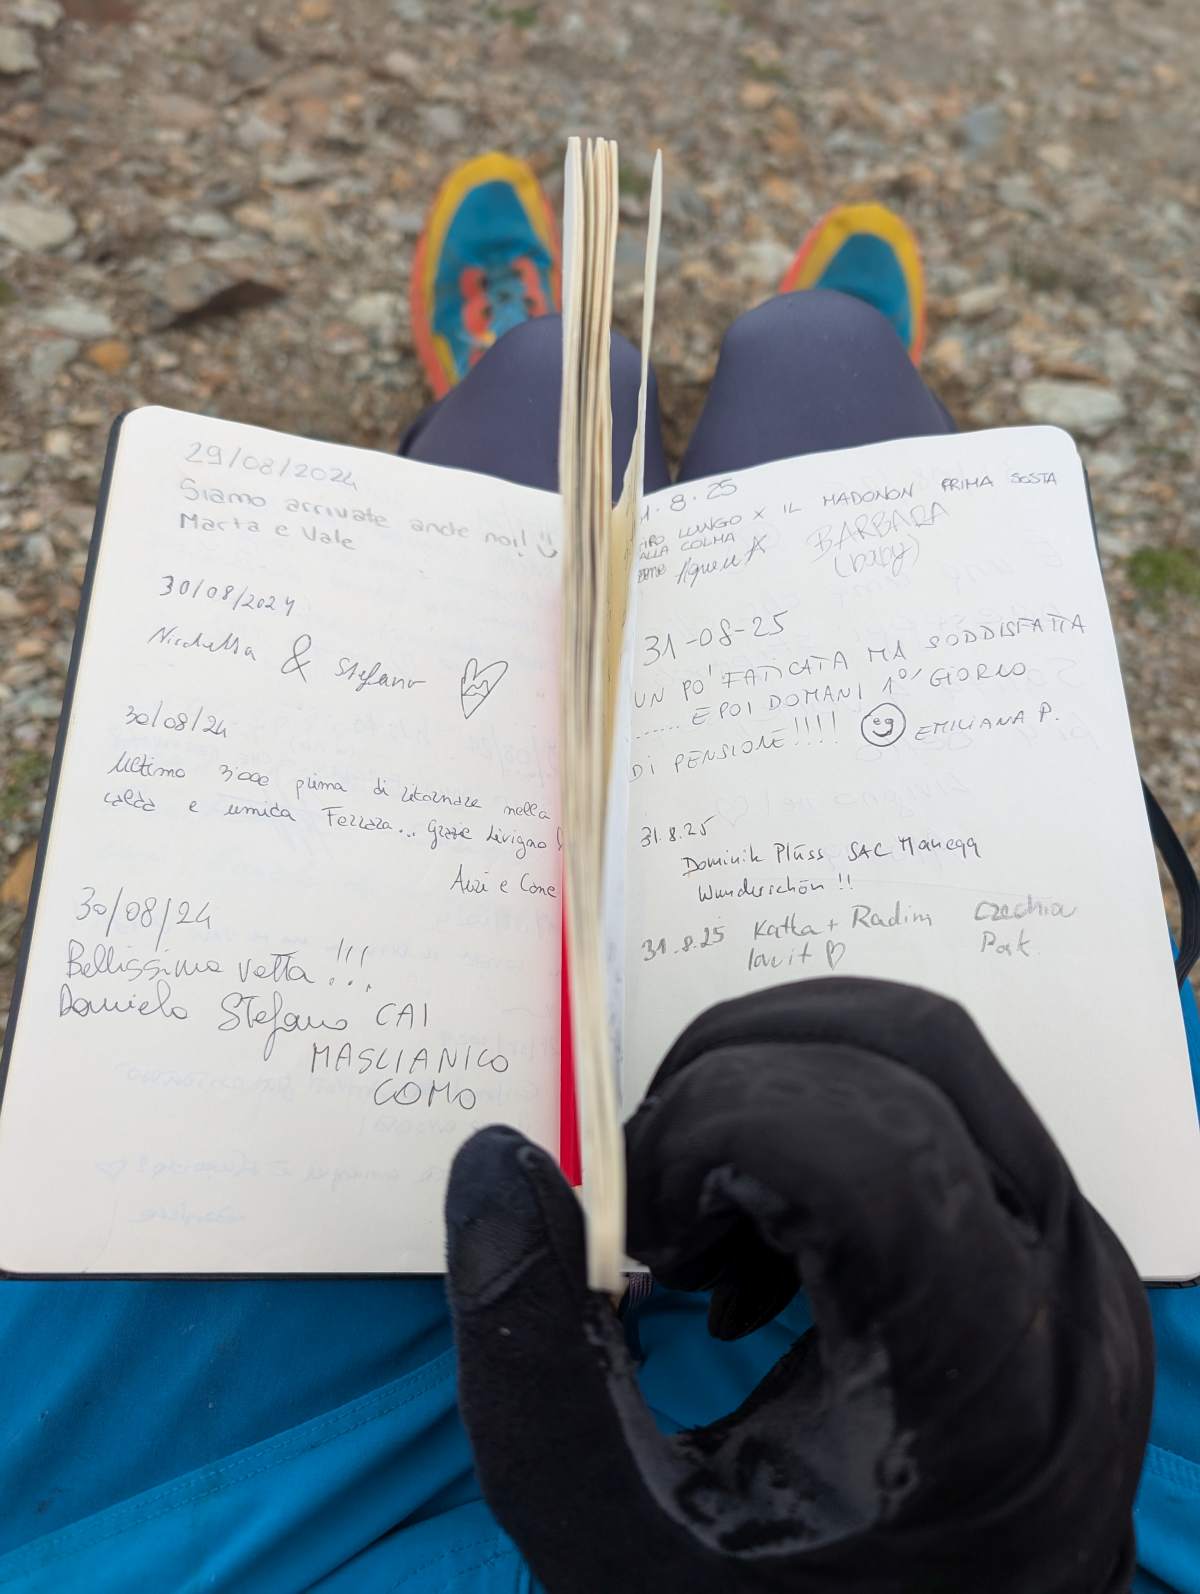 29/08/2024
Siamo arrivate anche noi!
Marta e Vale
30/08/2024
Nicoletta & Stefano
30/08/24
Ultimo 3'000 prima di ritornare nella
calda e umida Ferrara... Grazie Livigno
Auri e Cone
30/08/24
Bellissima vetta!!!
Daniela Stefano CAI
MASLIANICO
COMO
8.25
LUNGO X IL MADONON PRIMA SOSTA
ALLA COLMA
BARBARA
(baby)
31-08-25
UN PO' FATICATA MA SODDISFATTA
...... E POI DOMANI 1° GIORNO
DI PENSIONE!!!! EMILIANA P.
31.8.25
Dominik Plüss SAC Manegg
Wunderschön!!
31.8.25 Katka + Radim Czechia
love it